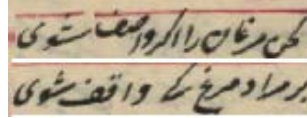 لحن مرغان را اگر واصف شوی
بر مراد مرغ کی واقف شوی